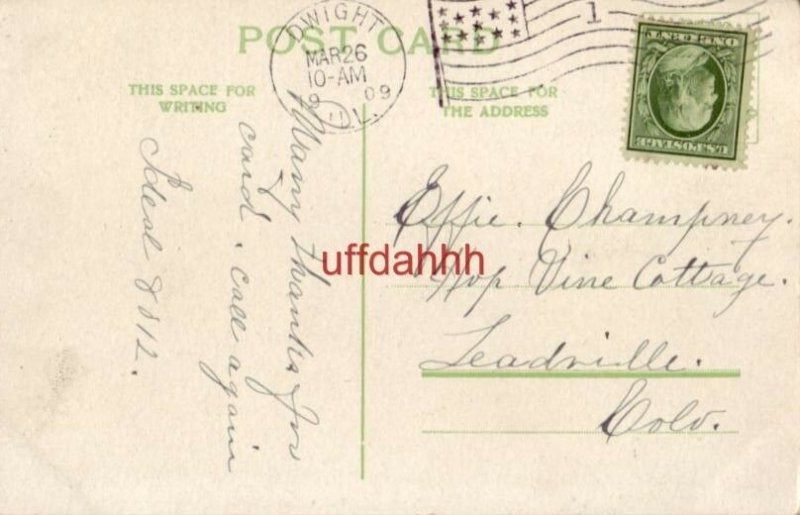 POST CARD
DWIGHT
MAR 26
10-AM
09
ILL.
1
ONE CENT
U.S. POSTAGE
THIS SPACE FOR
WRITING
THIS SPACE FOR
THE ADDRESS
Many thanks for
card. call again
Ideal 8812.
Effie. Champney.
Hop Vine Cottage.
Leadville.
Colo.
uffdahhh